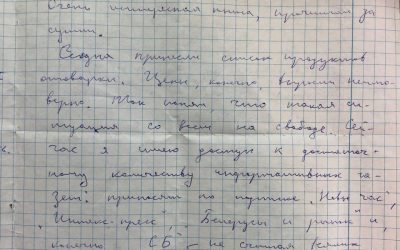 Очень интересная книга, прочитал за
сутки.
Сегодня принесли список продуктов
отоварки. Цены, конечно, выросли
Так понял, что такая си-
туация со всем на свободе. Сей-
час я имею доступ к достаточ-
ному количеству информативных га-
зет: приносят по путёвке „Новы час",
„Интэкс-пресс", „Белорусы и рынок" и,
конечно „СБ" – не считая всяких